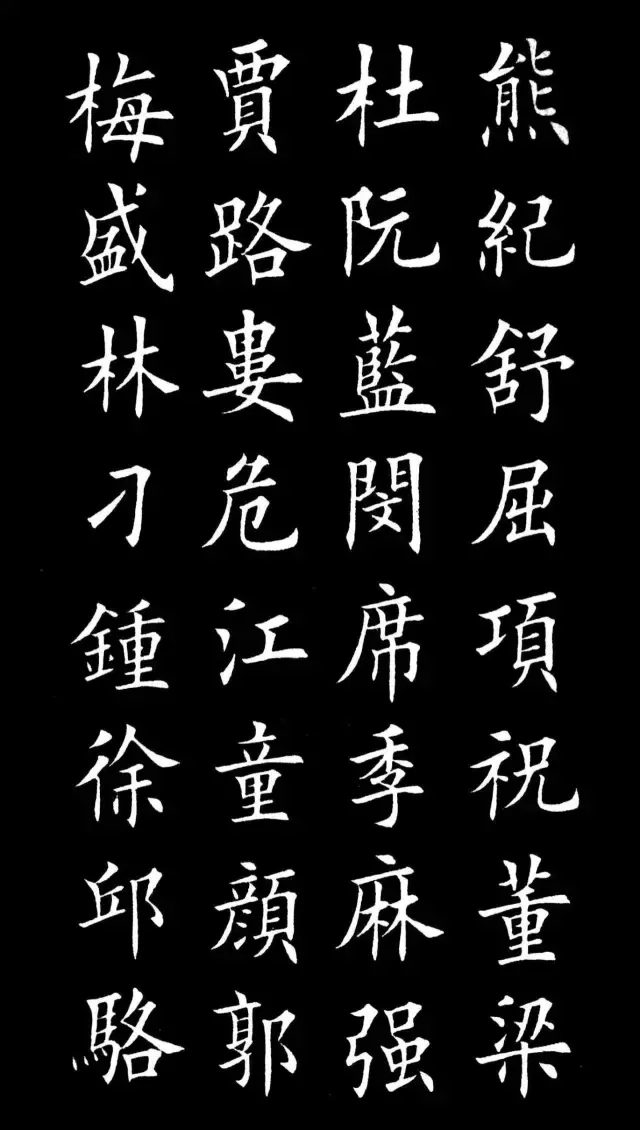 熊紀舒屈項祝董梁
杜阮藍閔席季麻强
賈路婁危江童顔郭
梅盛林刁鍾徐邱駱